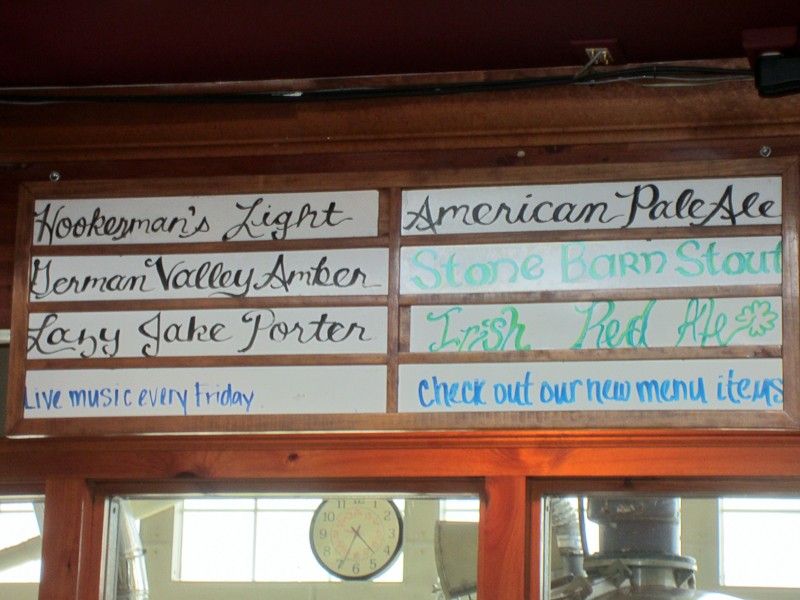 Hookerman's Light
American Pale Ale
German Valley Amber
Stone Barn Stout
Lazy Jake Porter
Irish Red Ale
Live music every Friday
check out our new menu items
11
1
10
2
9
3
8
4
7
5
6